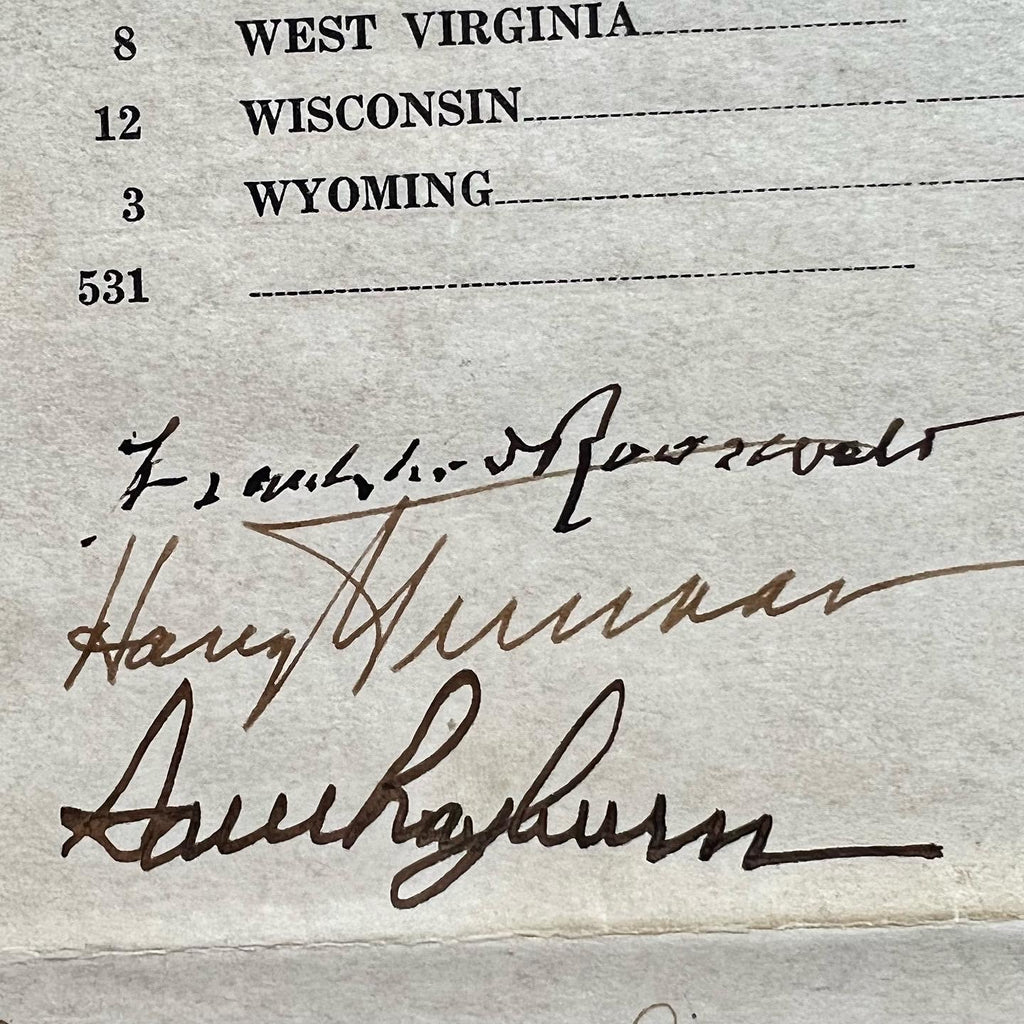 8 WEST VIRGINIA
12 WISCONSIN
3 WYOMING
531
Franklin D Roosevelt
Harry Truman
Sam Rayburn